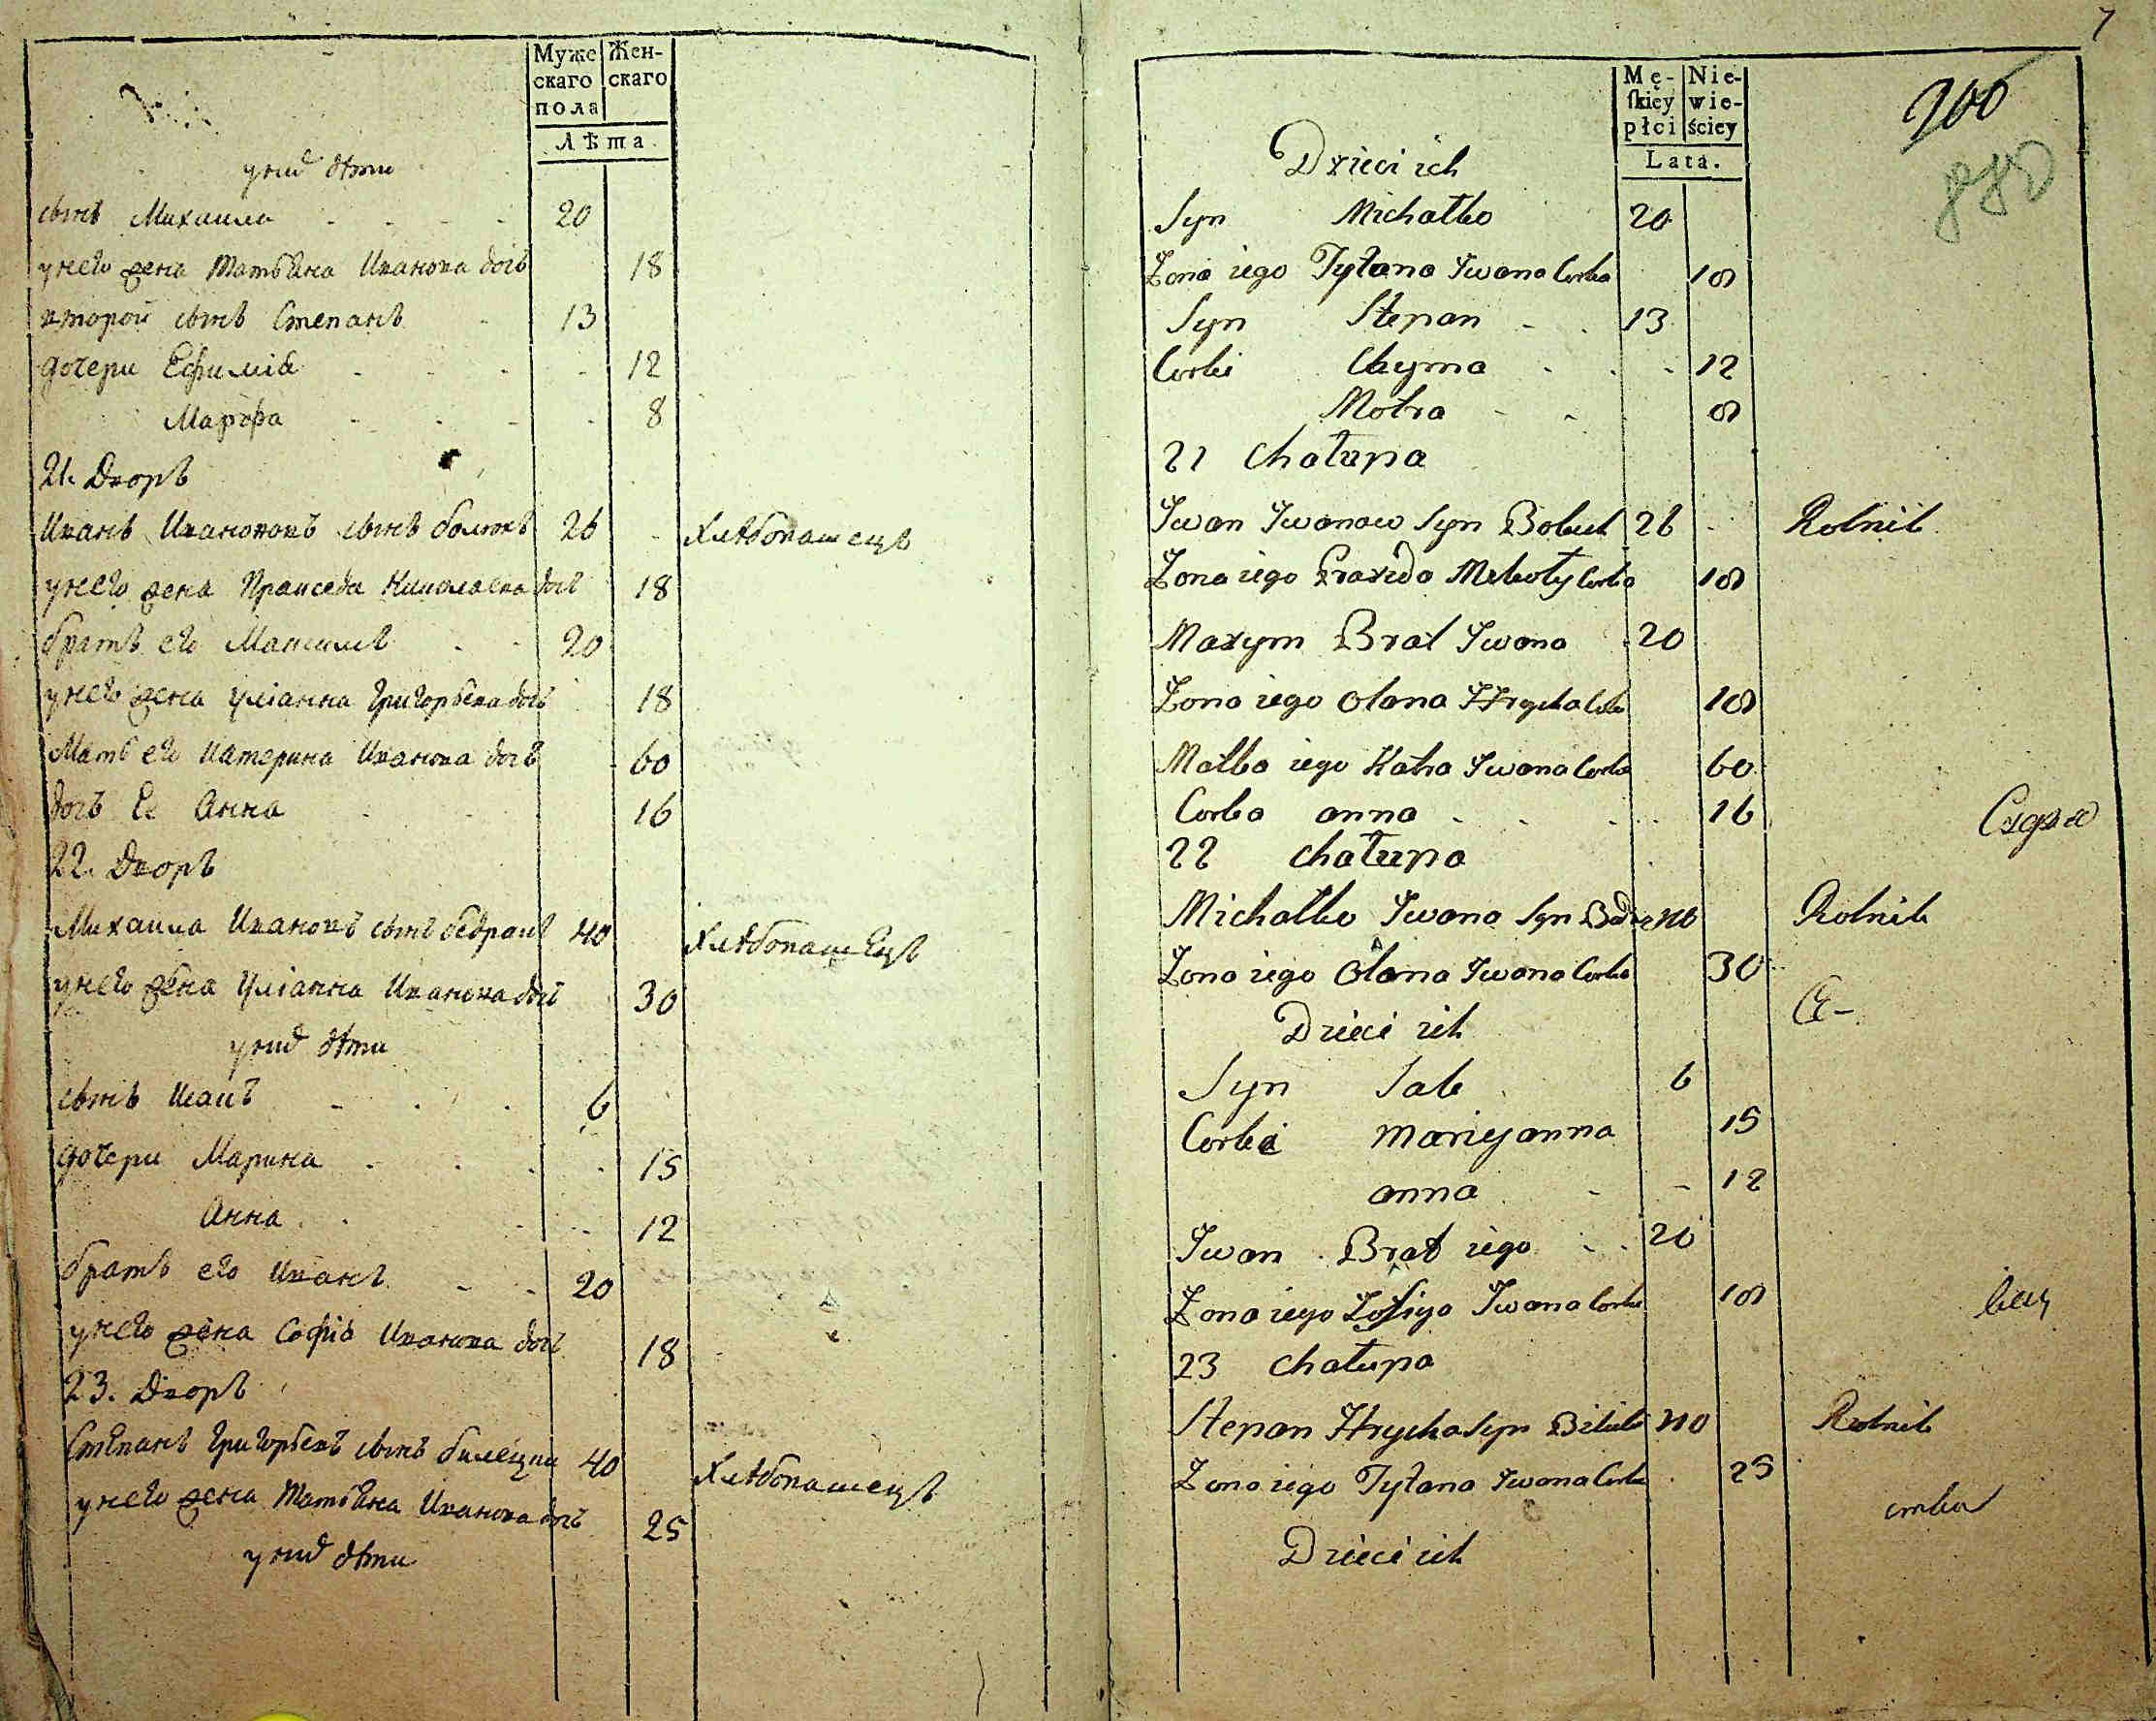 Муже
скаго
пола
Жен-
скаго
Лѣта
у них дѣти
сынъ Михаила 20
у него жена Татьѧна Иванова дочь 18
второй сынъ Степанъ 13
дочери Ефимiѧ 12
Марфа 8
21. Дворъ
Иванъ Ивановъ сынъ 26 Хлѣбопашецъ
у него жена Праксeда Николаева дочь 18
братъ его Максимъ 20
у него жена Улiанна Григорьева дочь 18
Мать его Катерина Иванова дочь 60
дочь Ее Анна 16
22. Дворъ
Михаила Ивановъ сынъ 40 Хлѣбопашецъ
у него жена Улiанна Иванова дочь 30
у них дѣти
сынъ Исакъ 6
дочери Марина 15
Анна 12
братъ его Иванъ 20
у него жена Софiѧ Иванова дочь 18
23. Дворъ
Степанъ Григорьевъ сынъ билецки 40 Хлѣбопашецъ
у него жена Татьѧна Иванова дочь 25
у них дѣти
7
Mę-
ſkiey
płci
Nie-
wie-
ściey
Lata.
Dzieci ich
Syn Michałko 20
Żona iego Tytana Iwana Corka 18
Syn Stepan 13
Corki Chyma 12
Motra 8
21 Chałupa
Iwan Iwanow Syn 26 Rolnik
Żona iego Praxeda Mekoły Corka 18
Maxym Brat Iwana 20
Żona iego Olana Hrycka Corka 18
Matka iego Katra Iwana Corka 60
Corka anna 16
22 Chałupa
Michałko Iwana Syn 40 Rolnik
Żona iego Olana Iwana Corka 30
Dzieci ich
Syn Sak 6
Corki Maryanna 15
anna 12
Iwan Brat iego 20
Żona iego Zofiya Iwana Corka 18
23 Chałupa
Stepan Hrycka Syn 40 Rolnik
Żona iego Tytana Iwana Corka 25
Dzieci ich